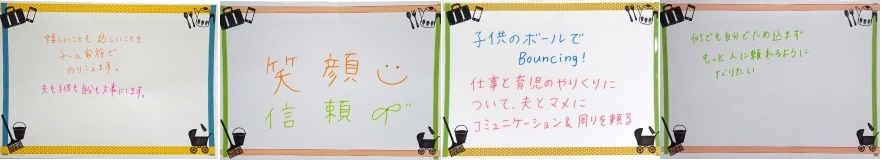 嬉しいことも 悲しいことも
チーム家族で
のりこえます。
夫も子供も 私も大事にします。
笑顔
信頼
子供のボールで
Bouncing!
仕事と育児のやりくりに
ついて、夫とマメに
コミュニケーション&周りを頼る
何でも自分でため込まず
もっと人に頼れるように
なりたい